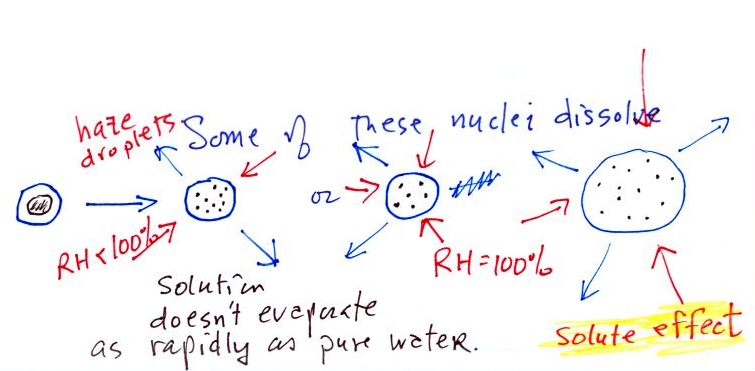 haze
droplets
Some of these nuclei dissolve
or
RH<100%
RH=100%
Solution
doesn't evaporate
as rapidly as pure water.
Solute effect